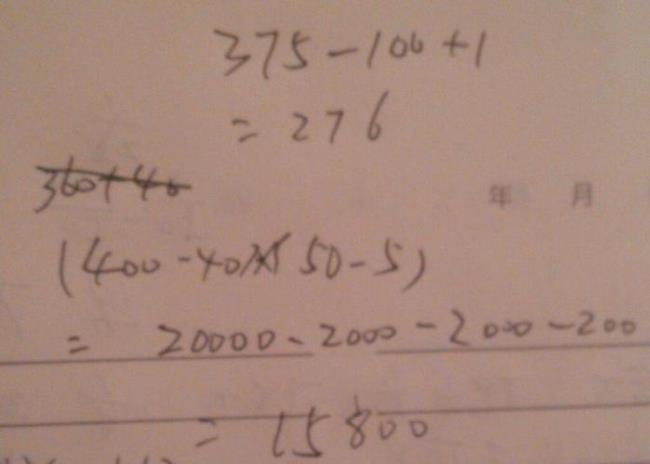 375-100+1
=276
360+40
年 月
(400-40)×(50-5)
= 20000-2000-2000-200
= 15800